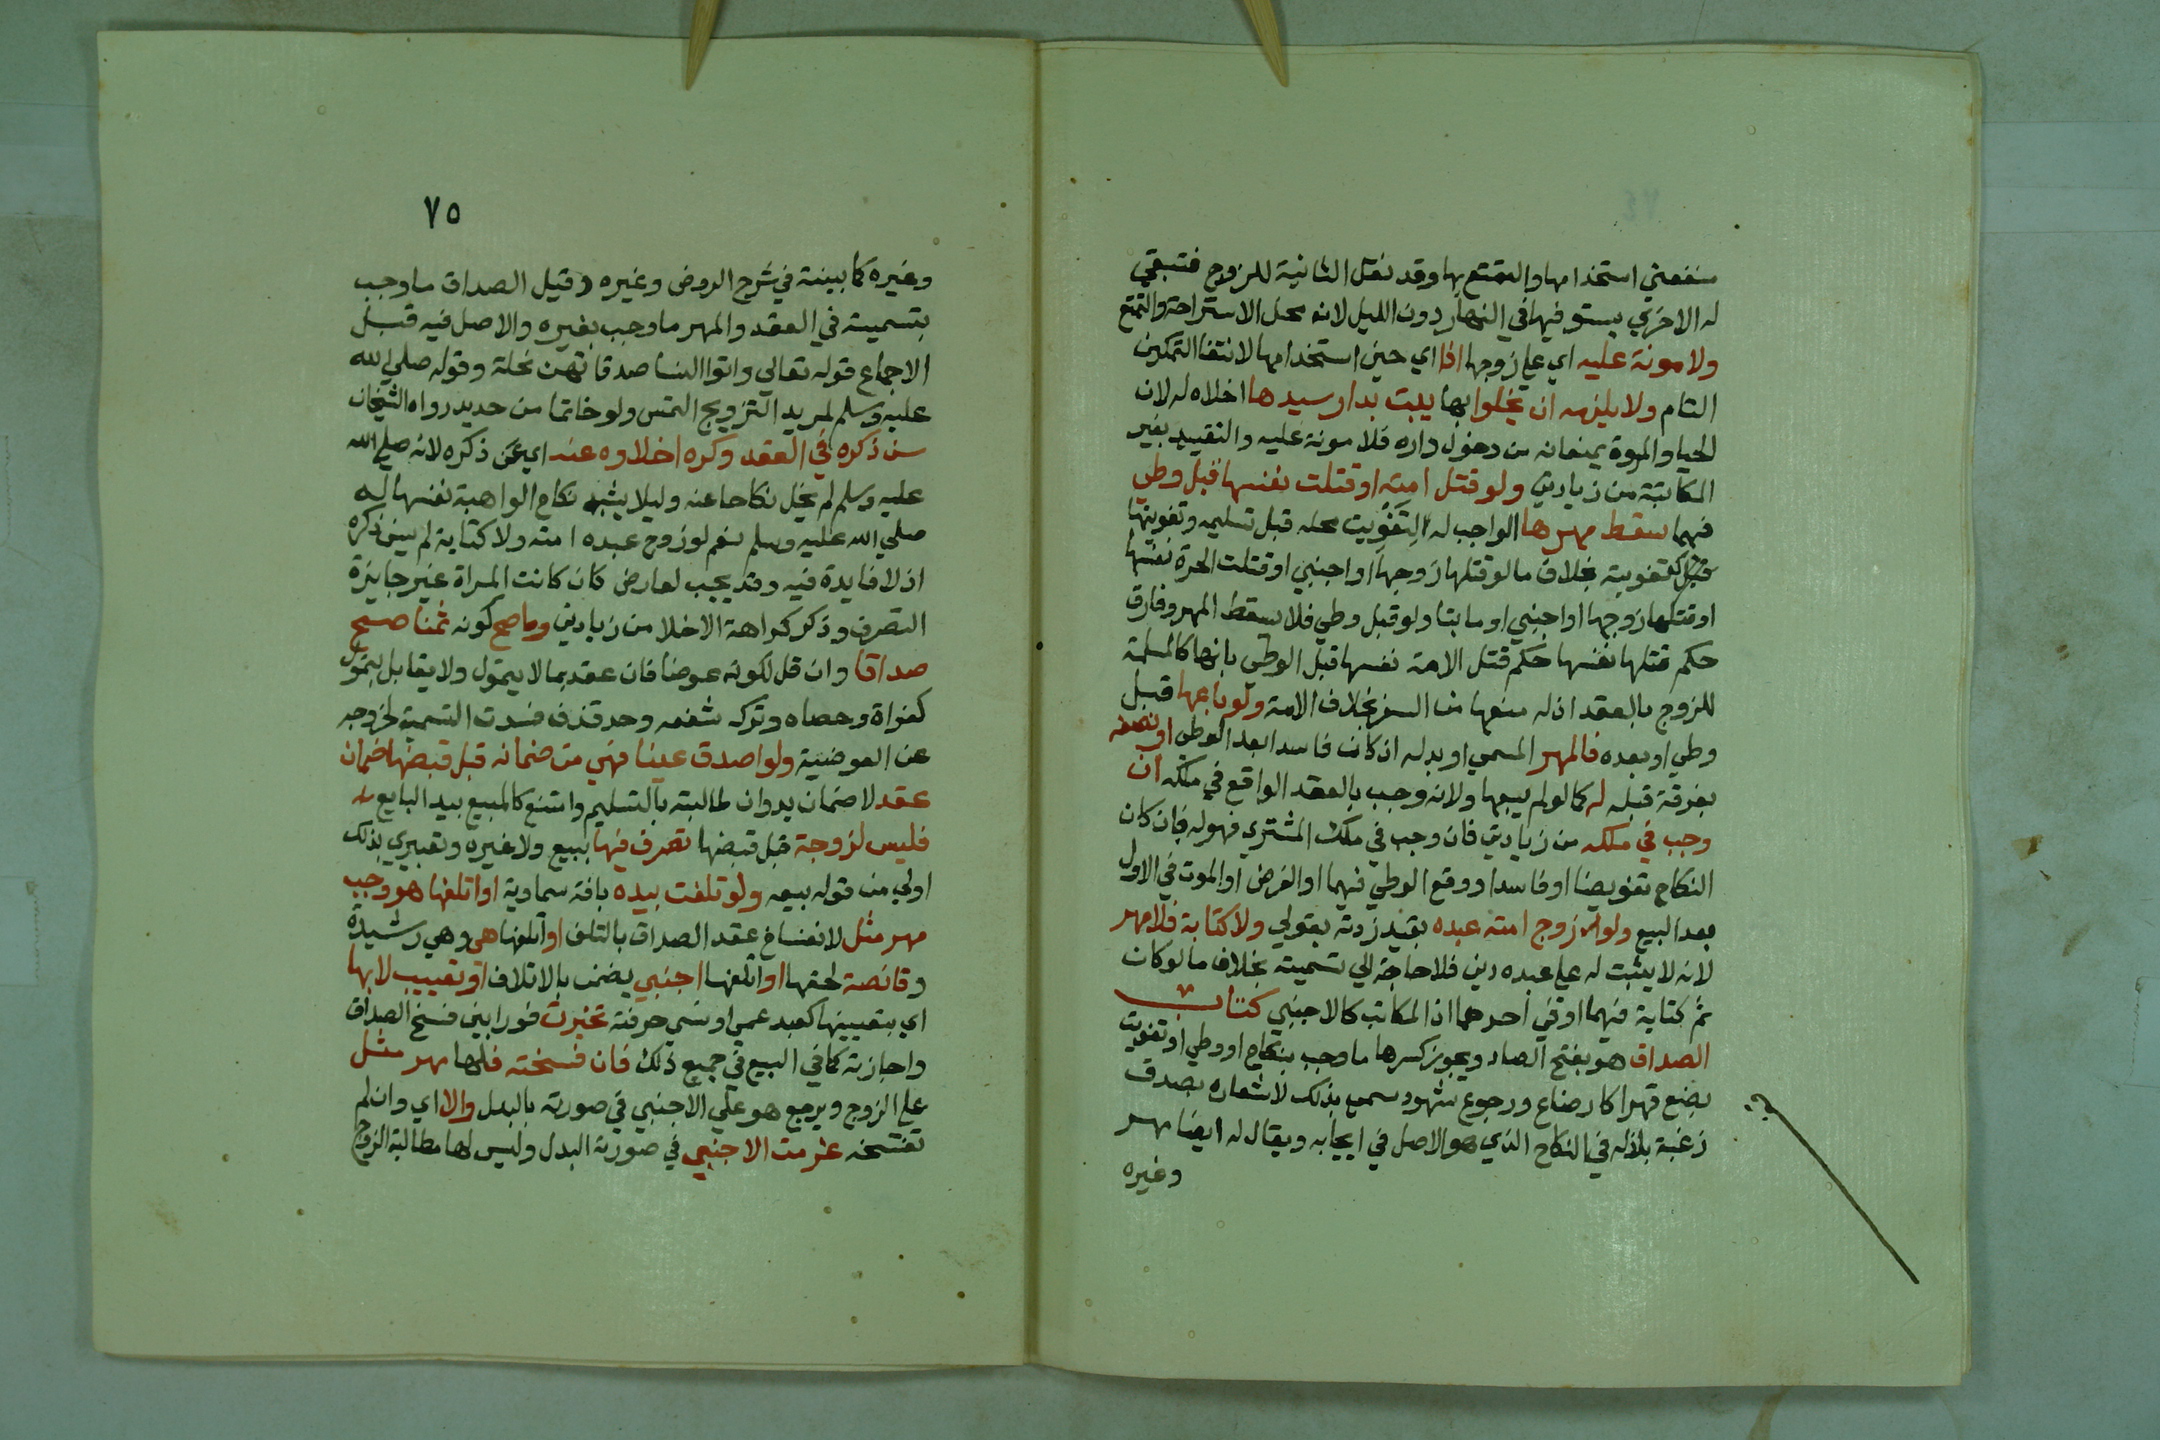 منفعتي استخدامها والتمتع بها وقد نقل الثانية للزوج فتبقي
له الاخري يستوفيها في النهار دون الليل لانه محل الاستراحة والتمتع
ولا مونة عليه اي علي زوجها اذا اي حين استخدامها لانتفا التمكين
التام ولا يلزمه ان يخلوا بها ببيت بدار سيدها اخلاه له لان
الحيا والمروة يمنعانه من دخول داره فلا مونة عليه والتقييد بغير
المكاتبة من زيادتي ولو قتل امته او قتلت نفسها قبل وطي
فيهما سقط مهرها الواجب له لتفويت محله قبل تسليمه وتفويتها
كتفويته بخلاف ما لو قتلها زوجها او اجنبي او قتلت الحرة نفسها
او قتلها زوجها او اجنبي او ماتتا ولو قبل وطي فلا سقط المهر وفارق
حكم قتلها نفسها حكم قتل الامة نفسها قبل الوطي بانها كالمسلمة
للزوج بالعقد اذ له منعها من السفر بخلاف الامة ولو باعها قبل
وطي او بعده فالمهر المسمي او بدله ان كان فاسدا بعد الوطي او نصفه
بفرقة قبله له كما لو لم يبعها ولانه وجب بالعقد الواقع في ملكه ان
وجب في ملكه من زيادتي فان وجب في ملك المشتري فهو له بان كان
النكاح تفويضا او فاسدا ووقع الوطي فيهما او الفرض او الموت في الاول
بعد البيع ولو زوج امته عبده بقيد زدته بقولي ولا كتابة فلا مهر
لانه لا يثبت له علي عبده دين فلا حاجة الي تسميته بخلاف ما لو كان
ثم كتابة فيهما او في احدهما اذ المكاتب كالاجنبي كتاب
الصداق هو بفتح الصاد ويجوز كسرها ما وجب بنكاح او وطي او تفويت
بضع قهرا كارضاع ورجوع شهود سمي بذلك لاشعاره بصدق
رغبة باذله في النكاح الذي هو الاصل في ايجابه ويقال له ايضا مهر
وغيره
٧٥
وغيره كما بينته في شرح الروض وغيره وقيل الصداق ما وجب
بتسميته في العقد والمهر ما وجب بغيره والاصل فيه قبل
الاجماع قوله تعالي واتوا النسا صدقاتهن نحلة وقوله صلي الله
عليه وسلم لمريد التزويج التمس ولو خاتما من حديد رواه الشيخان
سن ذكره في العقد وكره اخلاوه عنه اي عن ذكره لانه صلي الله
عليه وسلم لم يخل نكاحا عنه وليلا يشبه نكاح الواهبة نفسها له
صلي الله عليه وسلم نعم لو زوج عبده امته ولا كتابة لم يسن ذكره
اذ لا فايدة فيه وقد يجب لعارض كان كانت المراة غير جايزة
التصرف وذكر كراهة الاخلا من زيادتي وما صح كونه ثمنا صح
صداقا وان قل لكونه عوضا فان عقد بما لا يتمول ولا يقابل بمتمول
كنواة وحصاه وترك شفعه وحد قذف فسدت التسمية لخروجه
عن العوضية ولو اصدق عينا فهي من ضمانه قبل قبضها ضمان
عقد لا ضمان يد وان طالبته بالتسليم وامتنع كالمبيع بيد البايع
فليس لزوجة قبل قبضها تصرف فيها ببيع ولا غيره وتعبيري بذلك
اولي من قوله بيعه ولو تلفت بيده بافة سماوية او اتلفها هو وجب
مهر مثل لانفساخ عقد الصداق بالتلف او اتلفها هي وهي رشيدة
وقابضة لحقها او اتلفها اجنبي يضمن بالاتلاف او تعيبت لا بها
اي بتعييبها كعبد عمي او نسي حرفته تخيرت فورا بين فسخ الصداق
واجازته كما في البيع في جميع ذلك فان فسخته فلها مهر مثل
علي الزوج ويرجع هو علي الاجنبي في صورته بالبدل والا اي وان لم
تفسخه غرمت الاجنبي في صورته البدل وليس لها مطالبة الزوج